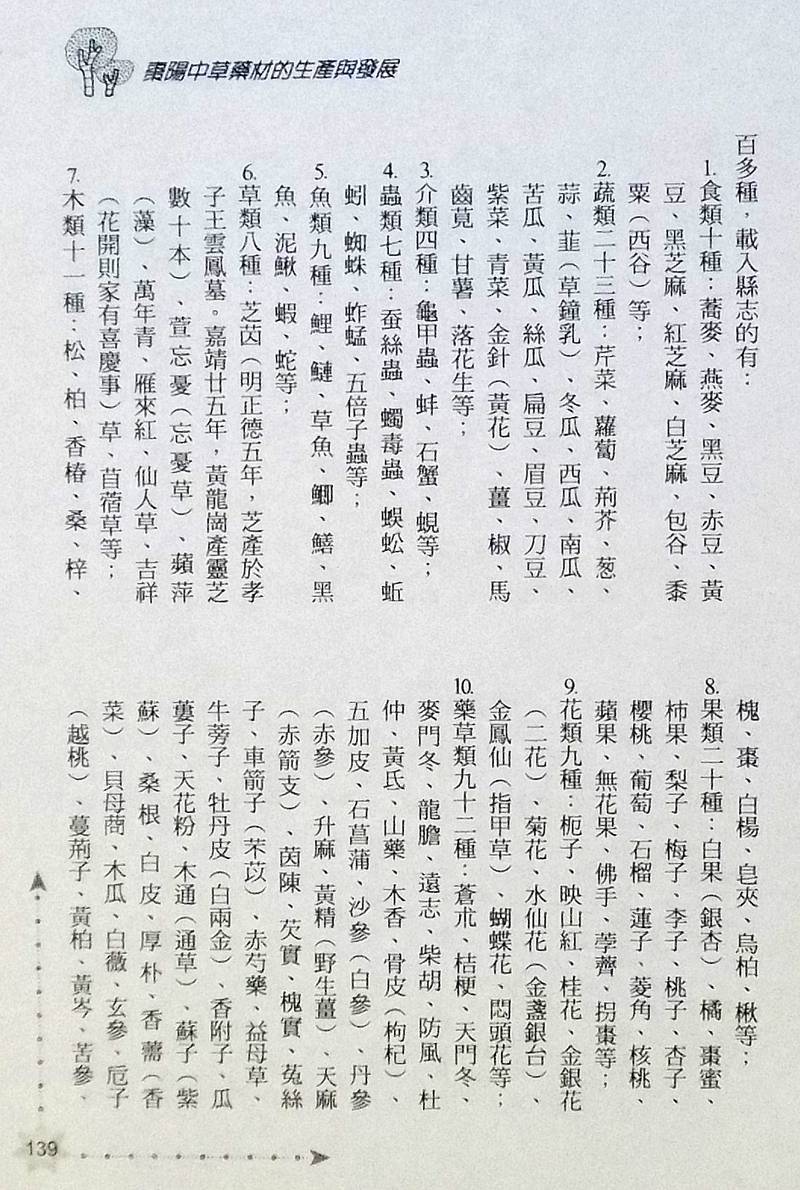 棗陽中草藥材的生產與發展
百多種，載入縣志的有：
1.食類十種：蕎麥、燕麥、黑豆、赤豆、黃
豆、黑芝麻、紅芝麻、白芝麻、包谷、黍
粟（西谷）等；
2.蔬類二十三種：芹菜、蘿蔔、荊芥、葱、
蒜、韭（草鐘乳）、冬瓜、西瓜、南瓜、
苦瓜、黃瓜、絲瓜、扁豆、眉豆、刀豆、
紫菜、青菜、金針（黃花）、薑、椒、馬
齒莧、甘薯、落花生等；
3.介類四種：龜甲蟲、蚌、石蟹、蜆等；
4.蟲類七種：蚕絲蟲、蠋毒蟲、蜈蚣、蚯
蚓、蜘蛛、蚱蜢、五倍子蟲等；
5.魚類九種：鯉、鰱、草魚、鯽、鱔、黑
魚、泥鰍、蝦、蛇等；
6.草類八種：芝茵（明正德五年，芝產於孝
子王雲鳳墓。嘉靖廿五年，黃龍崗產靈芝
數十本）、萱忘憂（忘憂草）、蘋萍
（藻）、萬年青、雁來紅、仙人草、吉祥
（花開則家有喜慶事）草、苜蓿草等；
7.木類十一種：松、柏、香椿、桑、梓、
槐、棗、白楊、皂夾、烏桕、楸等；
8.果類二十種：白果（銀杏）、橘、棗蜜、
柿果、梨子、梅子、李子、桃子、杏子、
櫻桃、葡萄、石榴、蓮子、菱角、核桃、
蘋果、無花果、佛手、荸薺、拐棗等；
9.花類九種：梔子、映山紅、桂花、金銀花
（二花）、菊花、水仙花（金盞銀台）、
金鳳仙（指甲草）、蝴蝶花、悶頭花等；
10.藥草類九十二種：蒼朮、桔梗、天門冬、
麥門冬、龍膽、遠志、柴胡、防風、杜
仲、黃氏、山藥、木香、骨皮（枸杞）、
五加皮、石菖蒲、沙參（白參）、丹參
（赤參）、升麻、黃精（野生薑）、天麻
（赤箭支）、茵陳、芡實、槐實、菟絲
子、車箭子（芣苡）、赤芍藥、益母草、
牛蒡子、牡丹皮（白兩金）、香附子、瓜
蔞子、天花粉、木通（通草）、蘇子（紫
蘇）、桑根、白皮、厚朴、香薷（香
菜）、貝母蒚、木瓜、白薇、玄參、卮子
（越桃）、蔓荊子、黃柏、黃岑、苦參、
139